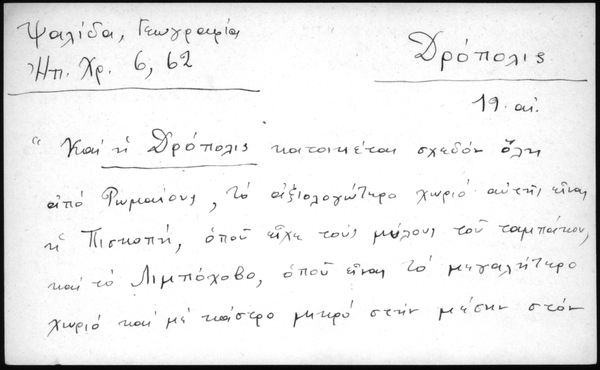 Ψαλίδα, Γεωγραφία
Ἠπ. Χρ. 6, 62
Δρόπολις
19. αἰ.
"Καὶ ἡ Δρόπολις κατοικιέται σχεδὸν ὅλη
ἀπό Ρωμαίους, τὸ ἀξιολογώτερο χωριό αὐτῆς εἶναι
ἡ Πισκοπή, ὁποῦ εἶχε τοὺς μύλους τοῦ ταμπάκου,
καὶ τὸ Λιμπόχοβο, ὁποῦ εἶναι τὸ μεγαλήτερο
χωριό καὶ μὲ κάστρο μικρό στὴν μέσην στὸν